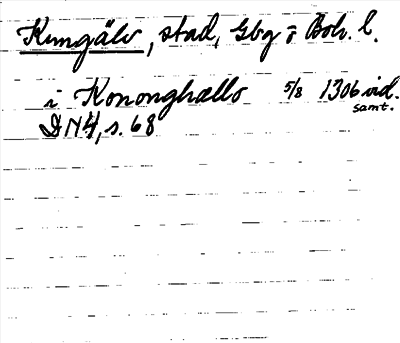 Kungälv, stad, Gbg o. Boh. l.
i Kononghællo 5/8 1306 vid.
samt.
DN 4, s. 68